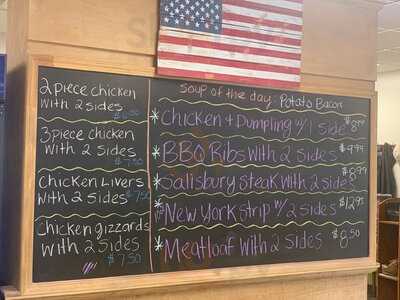 2 piece chicken
with 2 sides
$6.50
3 piece chicken
with 2 sides
$7.50
Chicken Livers
with 2 sides $7.50
Chicken gizzards
with 2 sides
$7.50
Soup of the day: Potato Bacon
*Chicken + Dumpling w/ 1 side $8.99
*BBQ Ribs with 2 sides $9.99
*Salisbury Steak with 2 sides $8.99
*New York Strip w/ 2 sides $12.95
*Meatloaf with 2 sides $8.50